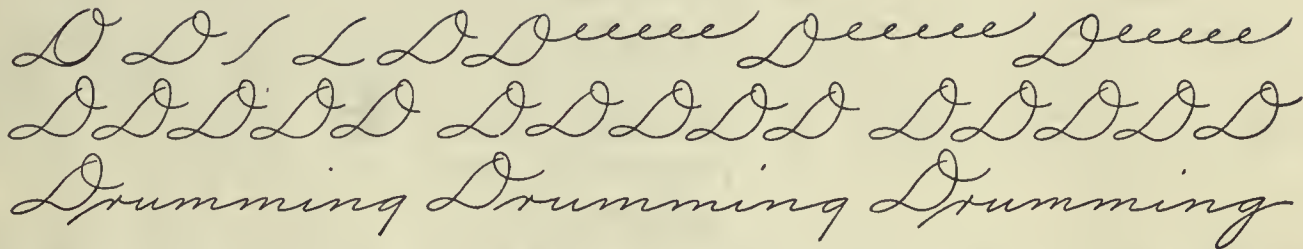 D D / L D Deeeee Deeeee Deeeee
DDDDD DDDDD DDDDD
Drumming Drumming Drumming